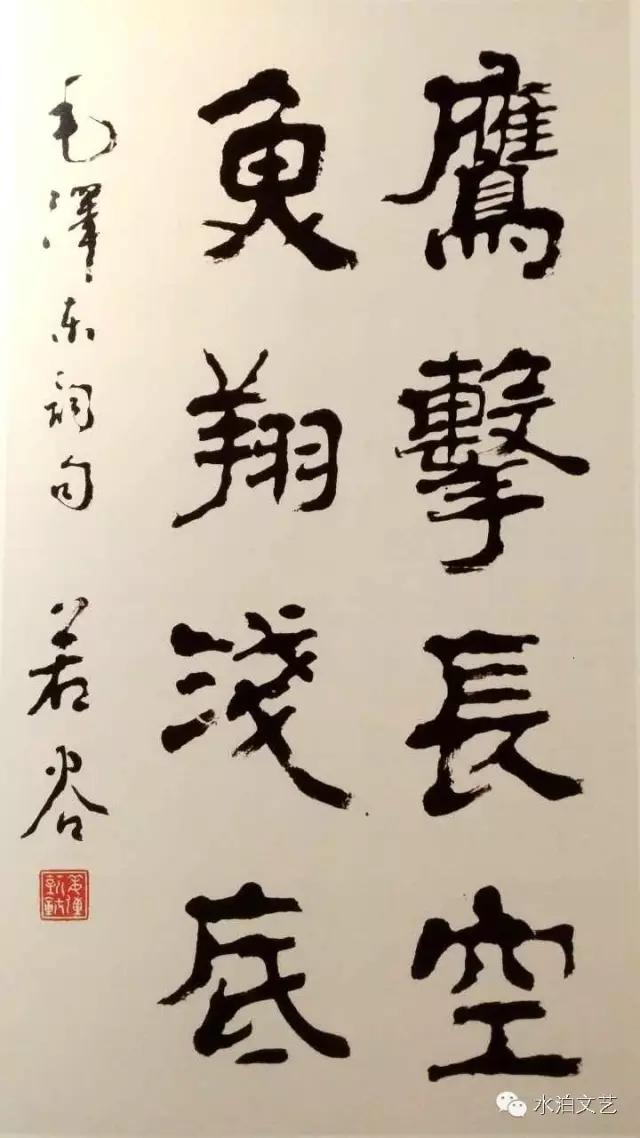 鷹擊長空
魚翔淺底
毛澤东詞句 若容
水泊文艺